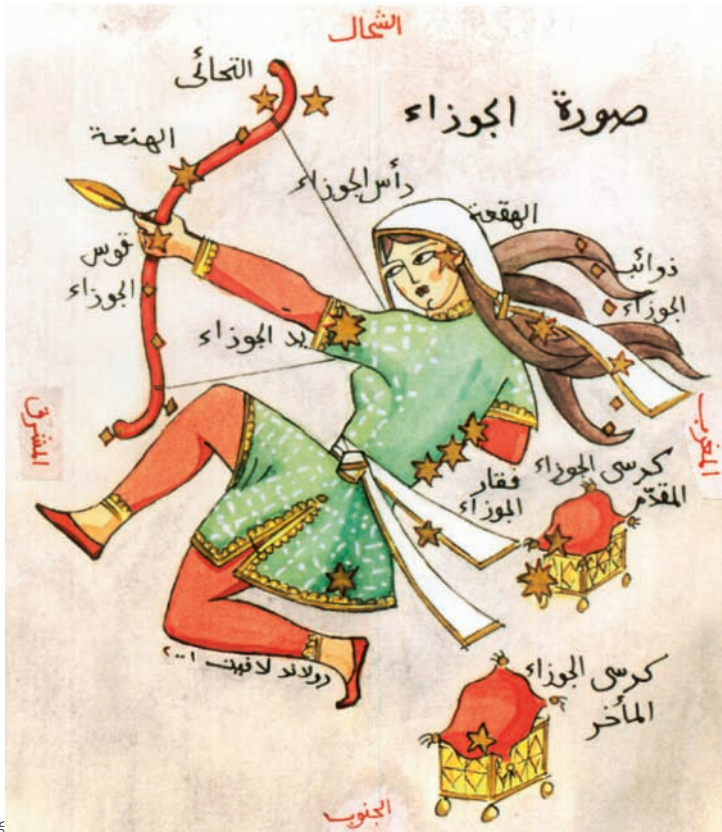 الشمال
التحائى
صورة الجوزاء
الهنعة
رأس الجوزاء
الهقعة
ذوائب
الجوزاء
قوس
الجوزاء
يد الجوزاء
المشرق
المغرب
كرسى الجوزاء
المقدّم
فقار
الجوزاء
رولاند لافيت ٢٠٠١
كرسى الجوزاء
المأخر
الجنوب